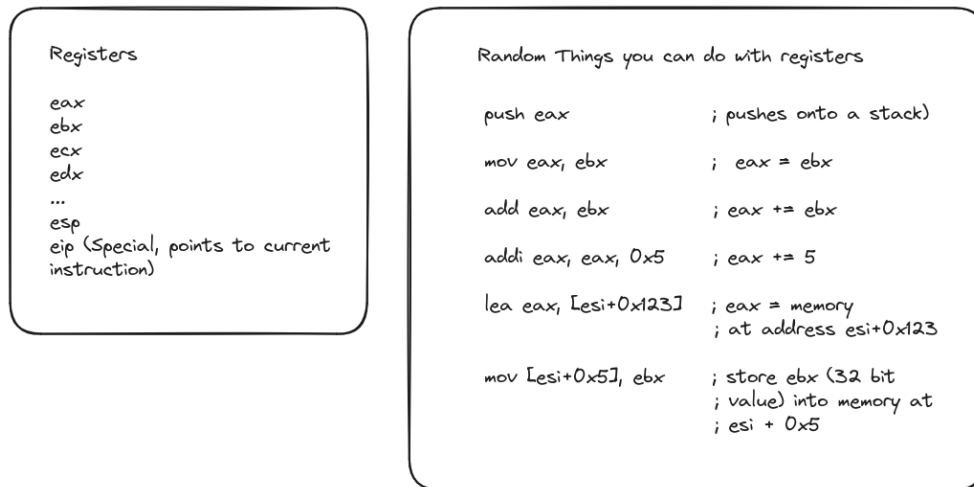 Registers
eax
ebx
ecx
edx
...
esp
eip (Special, points to current
instruction)
Random Things you can do with registers
push eax ; pushes onto a stack)
mov eax, ebx ; eax = ebx
add eax, ebx ; eax += ebx
addi eax, eax, 0x5 ; eax += 5
lea eax, [esi+0x123] ; eax = memory
; at address esi+0x123
mov [esi+0x5], ebx ; store ebx (32 bit
; value) into memory at
; esi + 0x5